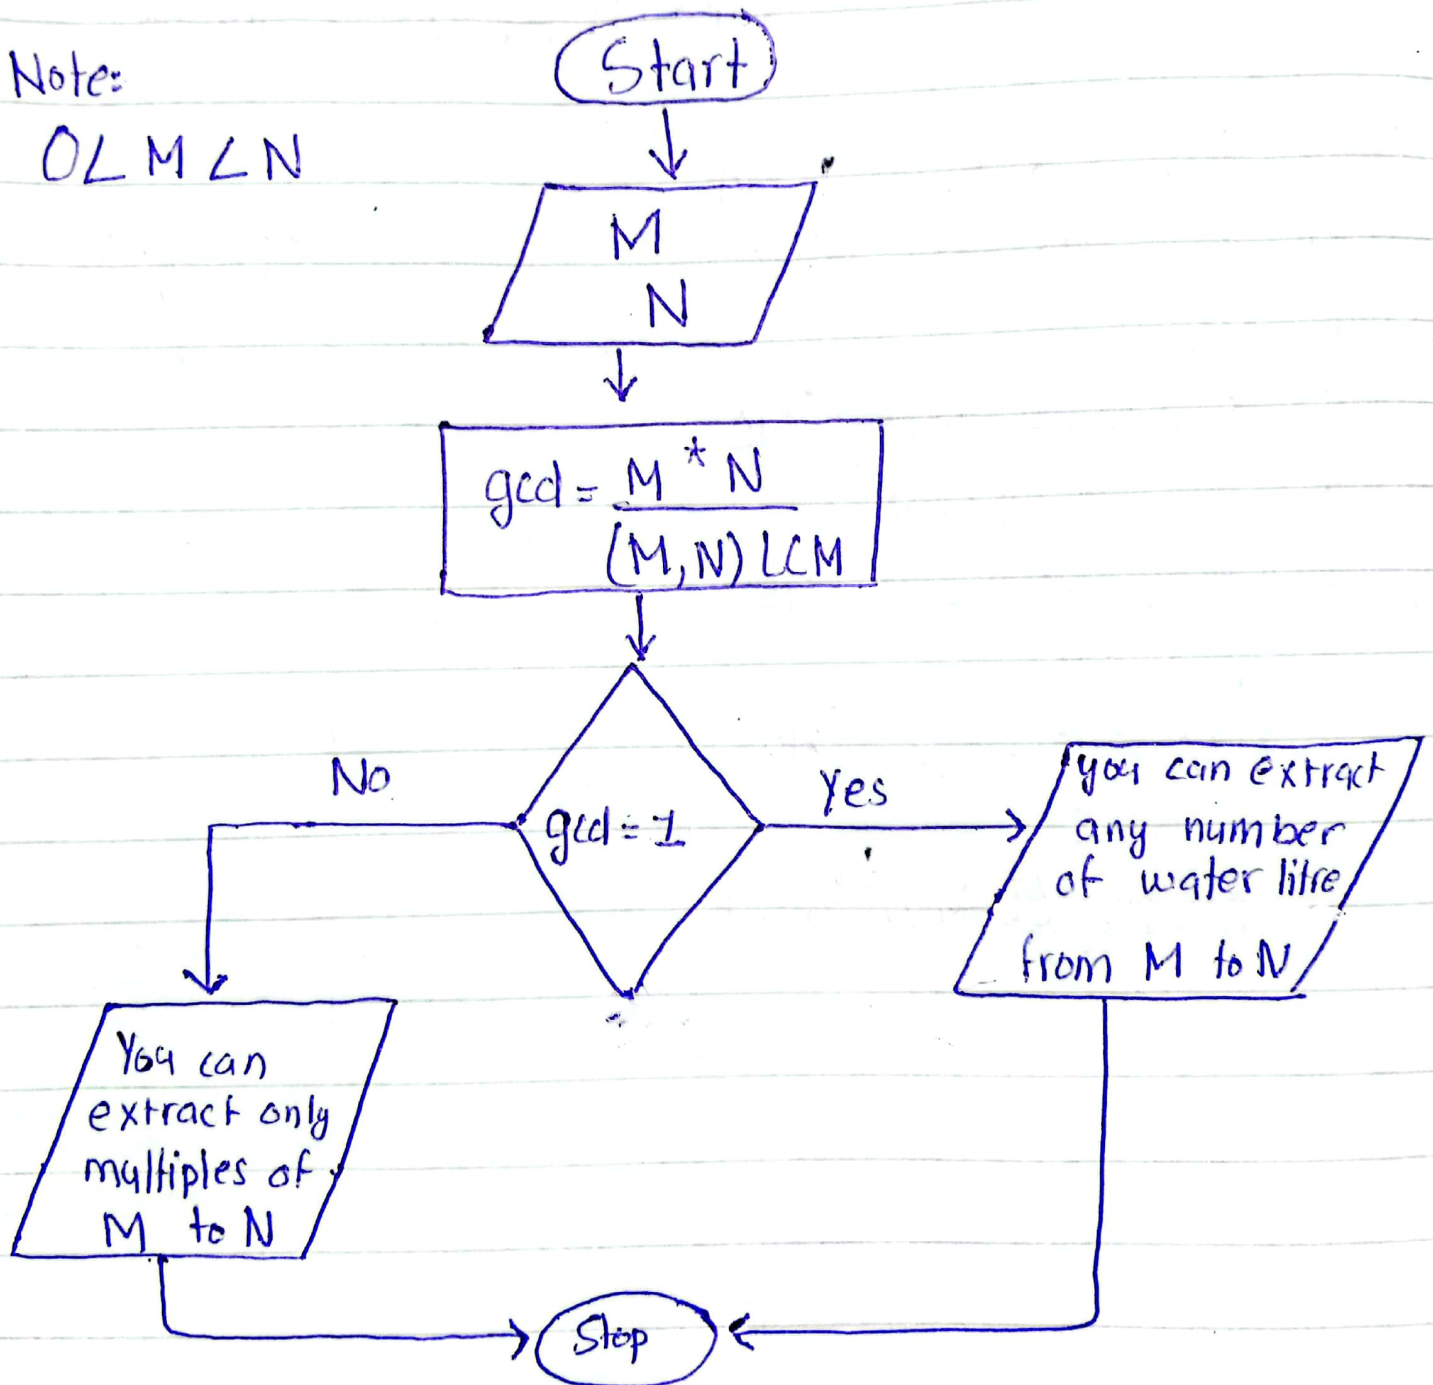 Note:
0 < M < N
Start
M
N
gcd = M * N
(M,N) LCM
gcd = 1
No
Yes
you can extract
any number
of water litre
from M to N
You can
extract only
multiples of
M to N
Stop